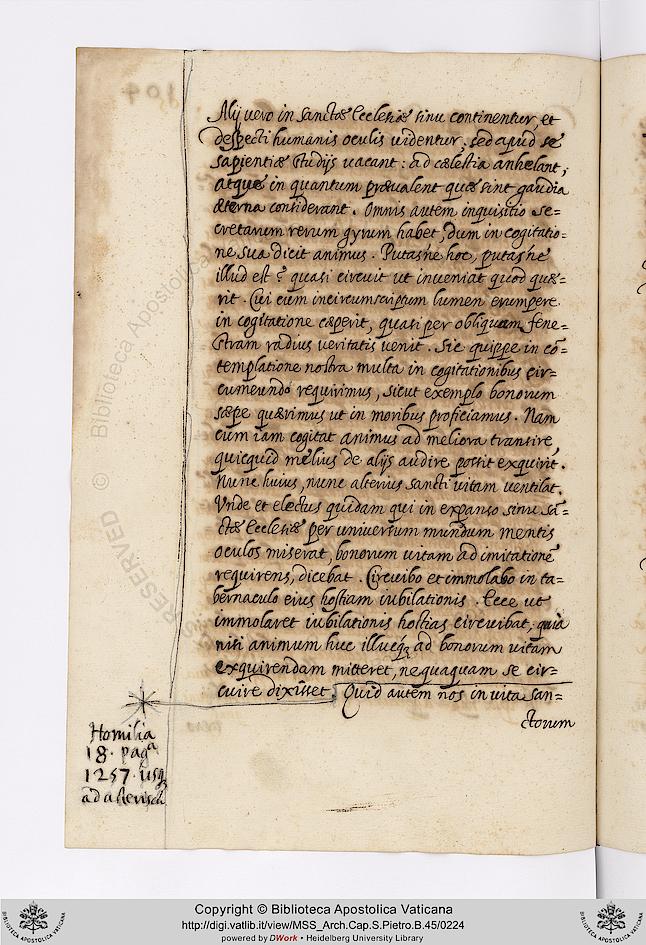 Alij vero in Sanctæ Ecclesiæ sinu continentur, et
despecti humanis oculis uidentur; sed apud se
sapientiæ studijs vacant: ad cælestia anhelant;
atque in quantum præualent quæ sint gaudia
æterna considerant. Omnis autem inquisitio se=
cretarum rerum gyrum habet, dum in cogitatio=
ne sua dicit animus. Putasne hoc, putasne
illud est? quasi circuit ut inueniat quod quæ=
rit. Cui cum incircumscriptum lumen erumpere
in cogitatione cæperit, quasi per obliquam fene=
stram radius veritatis venit. Sic quippe in cō=
templatione nostra multa in cogitationibus cir=
cumeundo requirimus, sicut exemplo bonorum
sæpe quærimus ut in moribus proficiamus. Nam
cum iam cogitat animus ad meliora transire,
quicquid melius de alijs audire potest exquirit.
Nunc huius, nunc alterius sancti uitam ventilat.
Vnde et electus quidam qui in expanso sinu sā=
ctæ Ecclesiæ per uniuersum mundum mentis
oculos miserat, bonorum uitam ad imitationē
requirens, dicebat. Circuibo et immolabo in ta=
bernaculo eius hostiam iubilationis. Ecce ut
immolaret iubilationis hostias circuibat; quia
nisi animum huc illucq; ad bonorum uitam
exquirendam mitteret, nequaquam se cir=
cuire dixisset. Quid autem nos in uita san=
ctorum
Homilia
18. pagᵃ
1257. usq;
ad alterisch
© Biblioteca Apostolica
RESERVED
Copyright © Biblioteca Apostolica Vaticana
http://digi.vatlib.it/view/MSS_Arch.Cap.S.Pietro.B.45/0224
powered by DWork • Heidelberg University Library